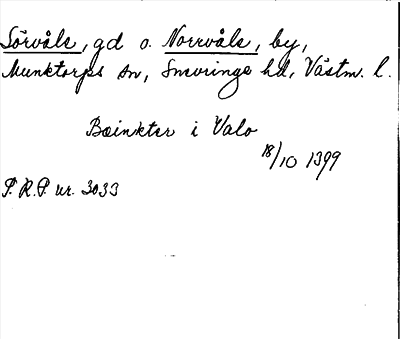 Sörvåle, gd o. Norrvåle, by,
Munktorps sn, Snevringe hd, Västm. l.
Beinkter i Valo
18/10 1399
P.R.P. nr. 3033